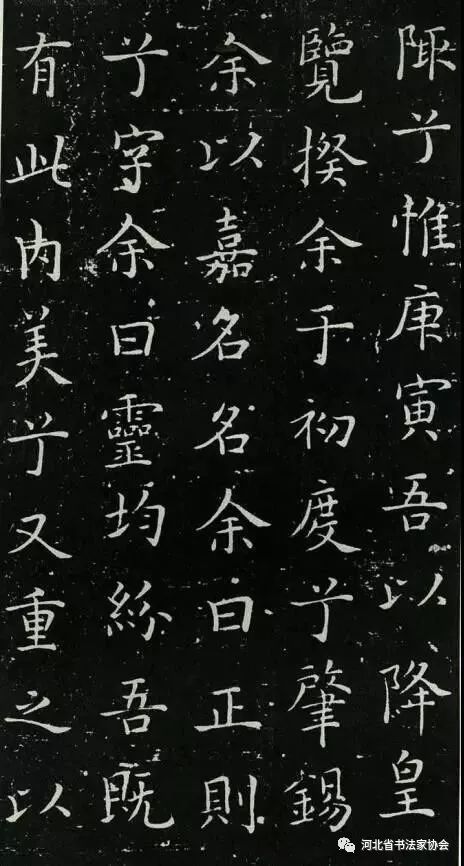 陬兮惟庚寅吾以降皇
覽揆余于初度兮肇錫
余以嘉名名余曰正則
兮字余曰靈均紛吾既
有此内美兮又重之以
河北省书法家协会